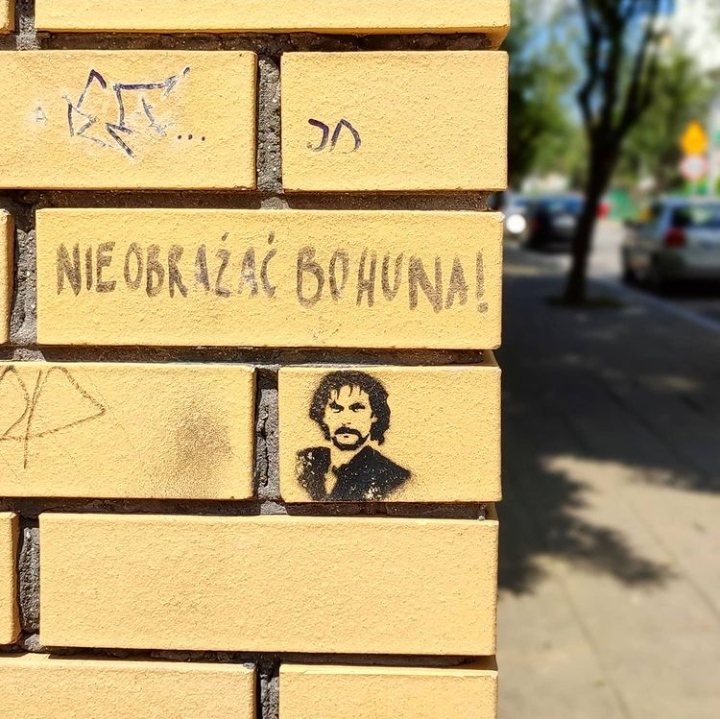 NIE OBRAŻAĆ BOHUNA!